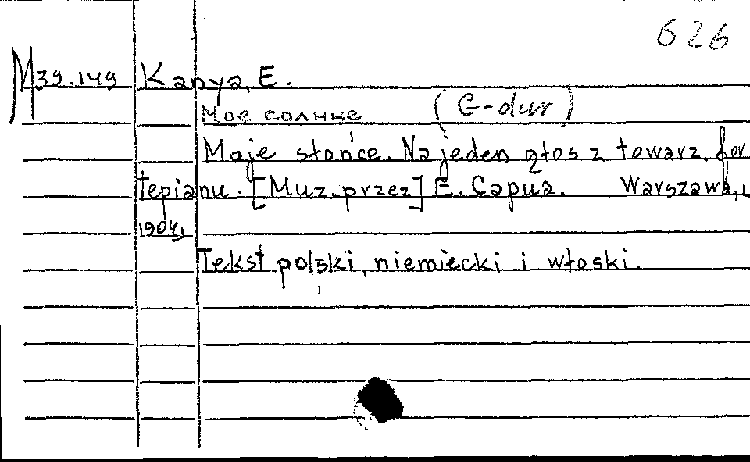 626
M 39.149 Капуа, Е.
Мое солнце (G-dur)
Moje słońce. Na jeden głos z towarz. for
tepianu. [Muz. przez] E. Capua. Warszawa,
1904.
Tekst polski, niemiecki i włoski.